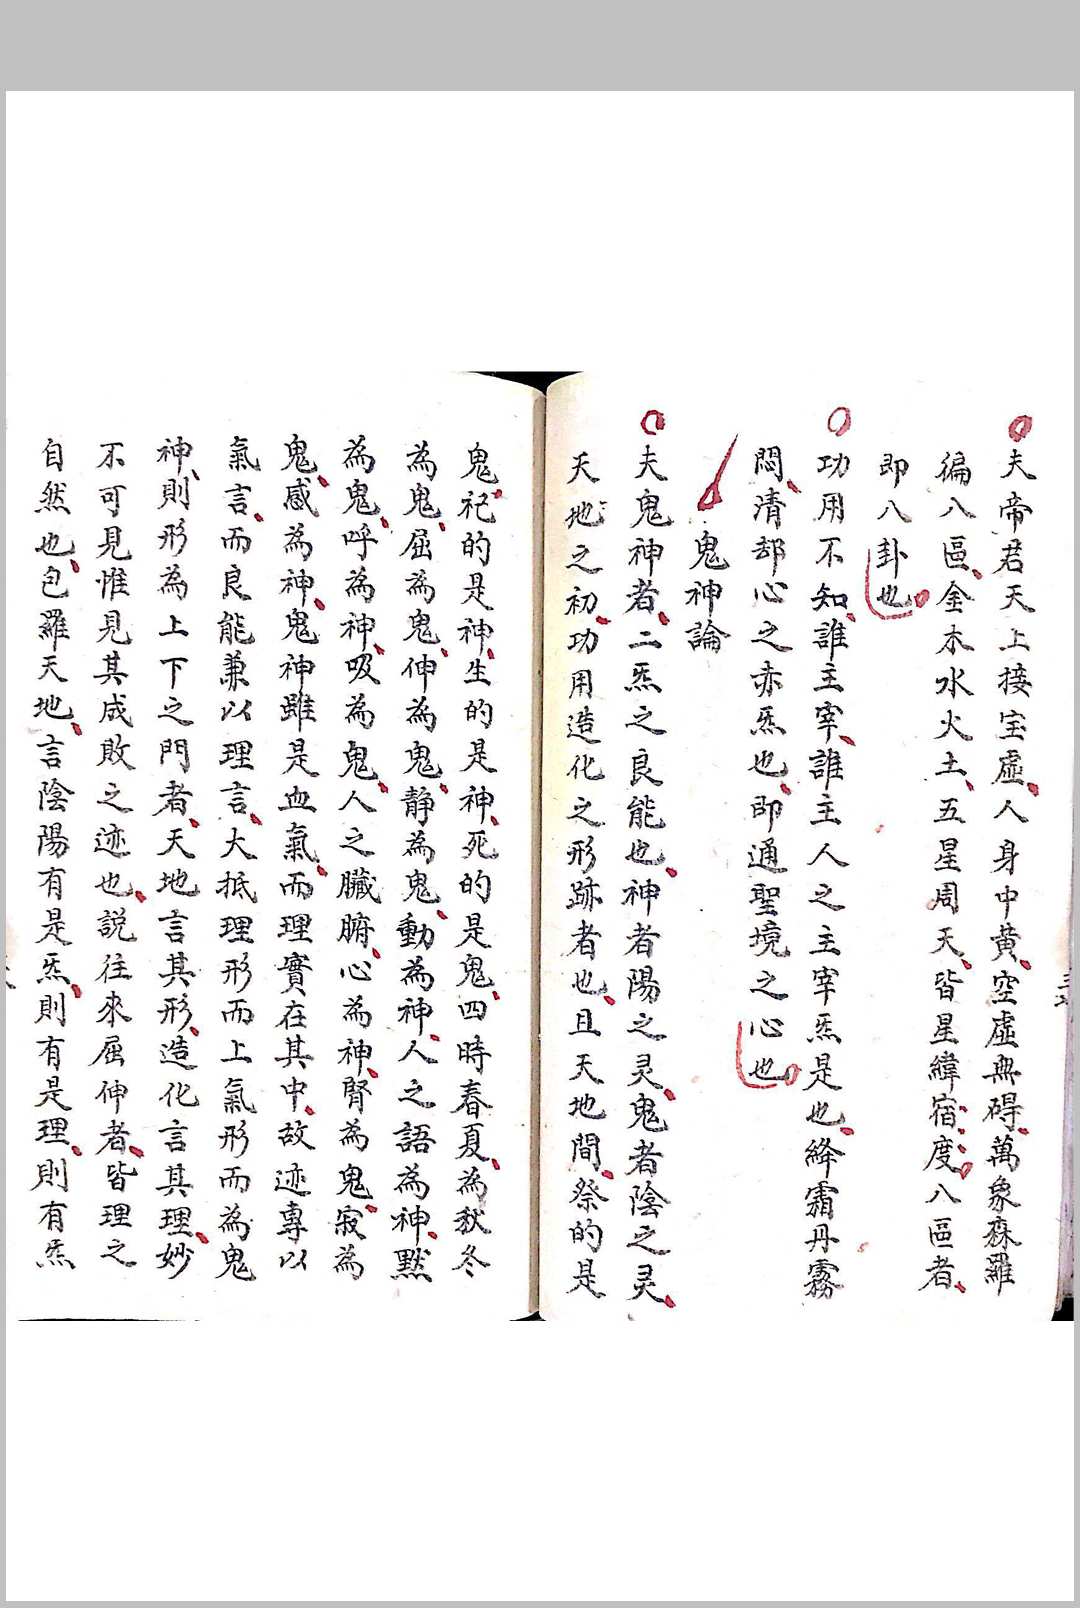 夫帝君天上接宝虛、人身中黄、空虛無碍、萬象森羅
徧八區、金木水火土、五星周天、皆星緯宿度、八區者、
即八卦也
功用不知、誰主宰、誰主人之主宰炁是也、絳霜丹霧
悶、清却心之赤炁也、即通聖境之心也
鬼神論
夫鬼神者、二炁之良能也、神者陽之灵、鬼者陰之灵、
天地之初、功用造化之形跡者也、且天地間、祭的是
鬼、祀的是神、生的是神、死的是鬼、四時春夏、為秋冬
為鬼、屈為鬼、伸為鬼、静為鬼、動為神、人之語為神、黙
為鬼、呼為神、吸為鬼、人之臟腑、心為神、腎為鬼、寂為
鬼、感為神、鬼神雖是血氣、而理實在其中、故迹專以
氣言、而良能兼以理言、大抵理形而上氣形而為鬼
神、則形為上下之門者、天地言其形、造化言其理、妙
不可見惟見其成敗之迹也、說往來屈伸者、皆理之
自然也、包羅天地、言陰陽有是炁、則有是理、則有炁